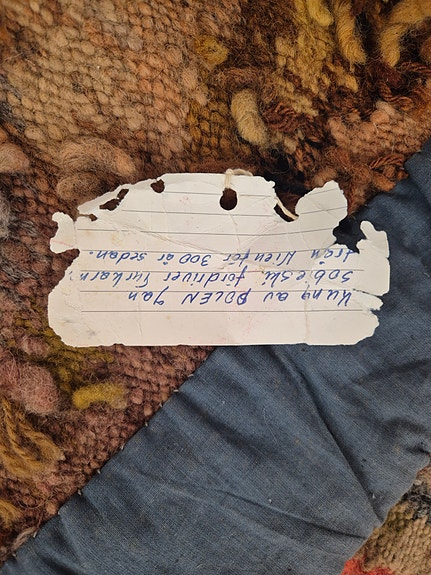 Kung av POLEN Jan
Sobieski fördriver Turkarn
från Wien för 300 år sedan.